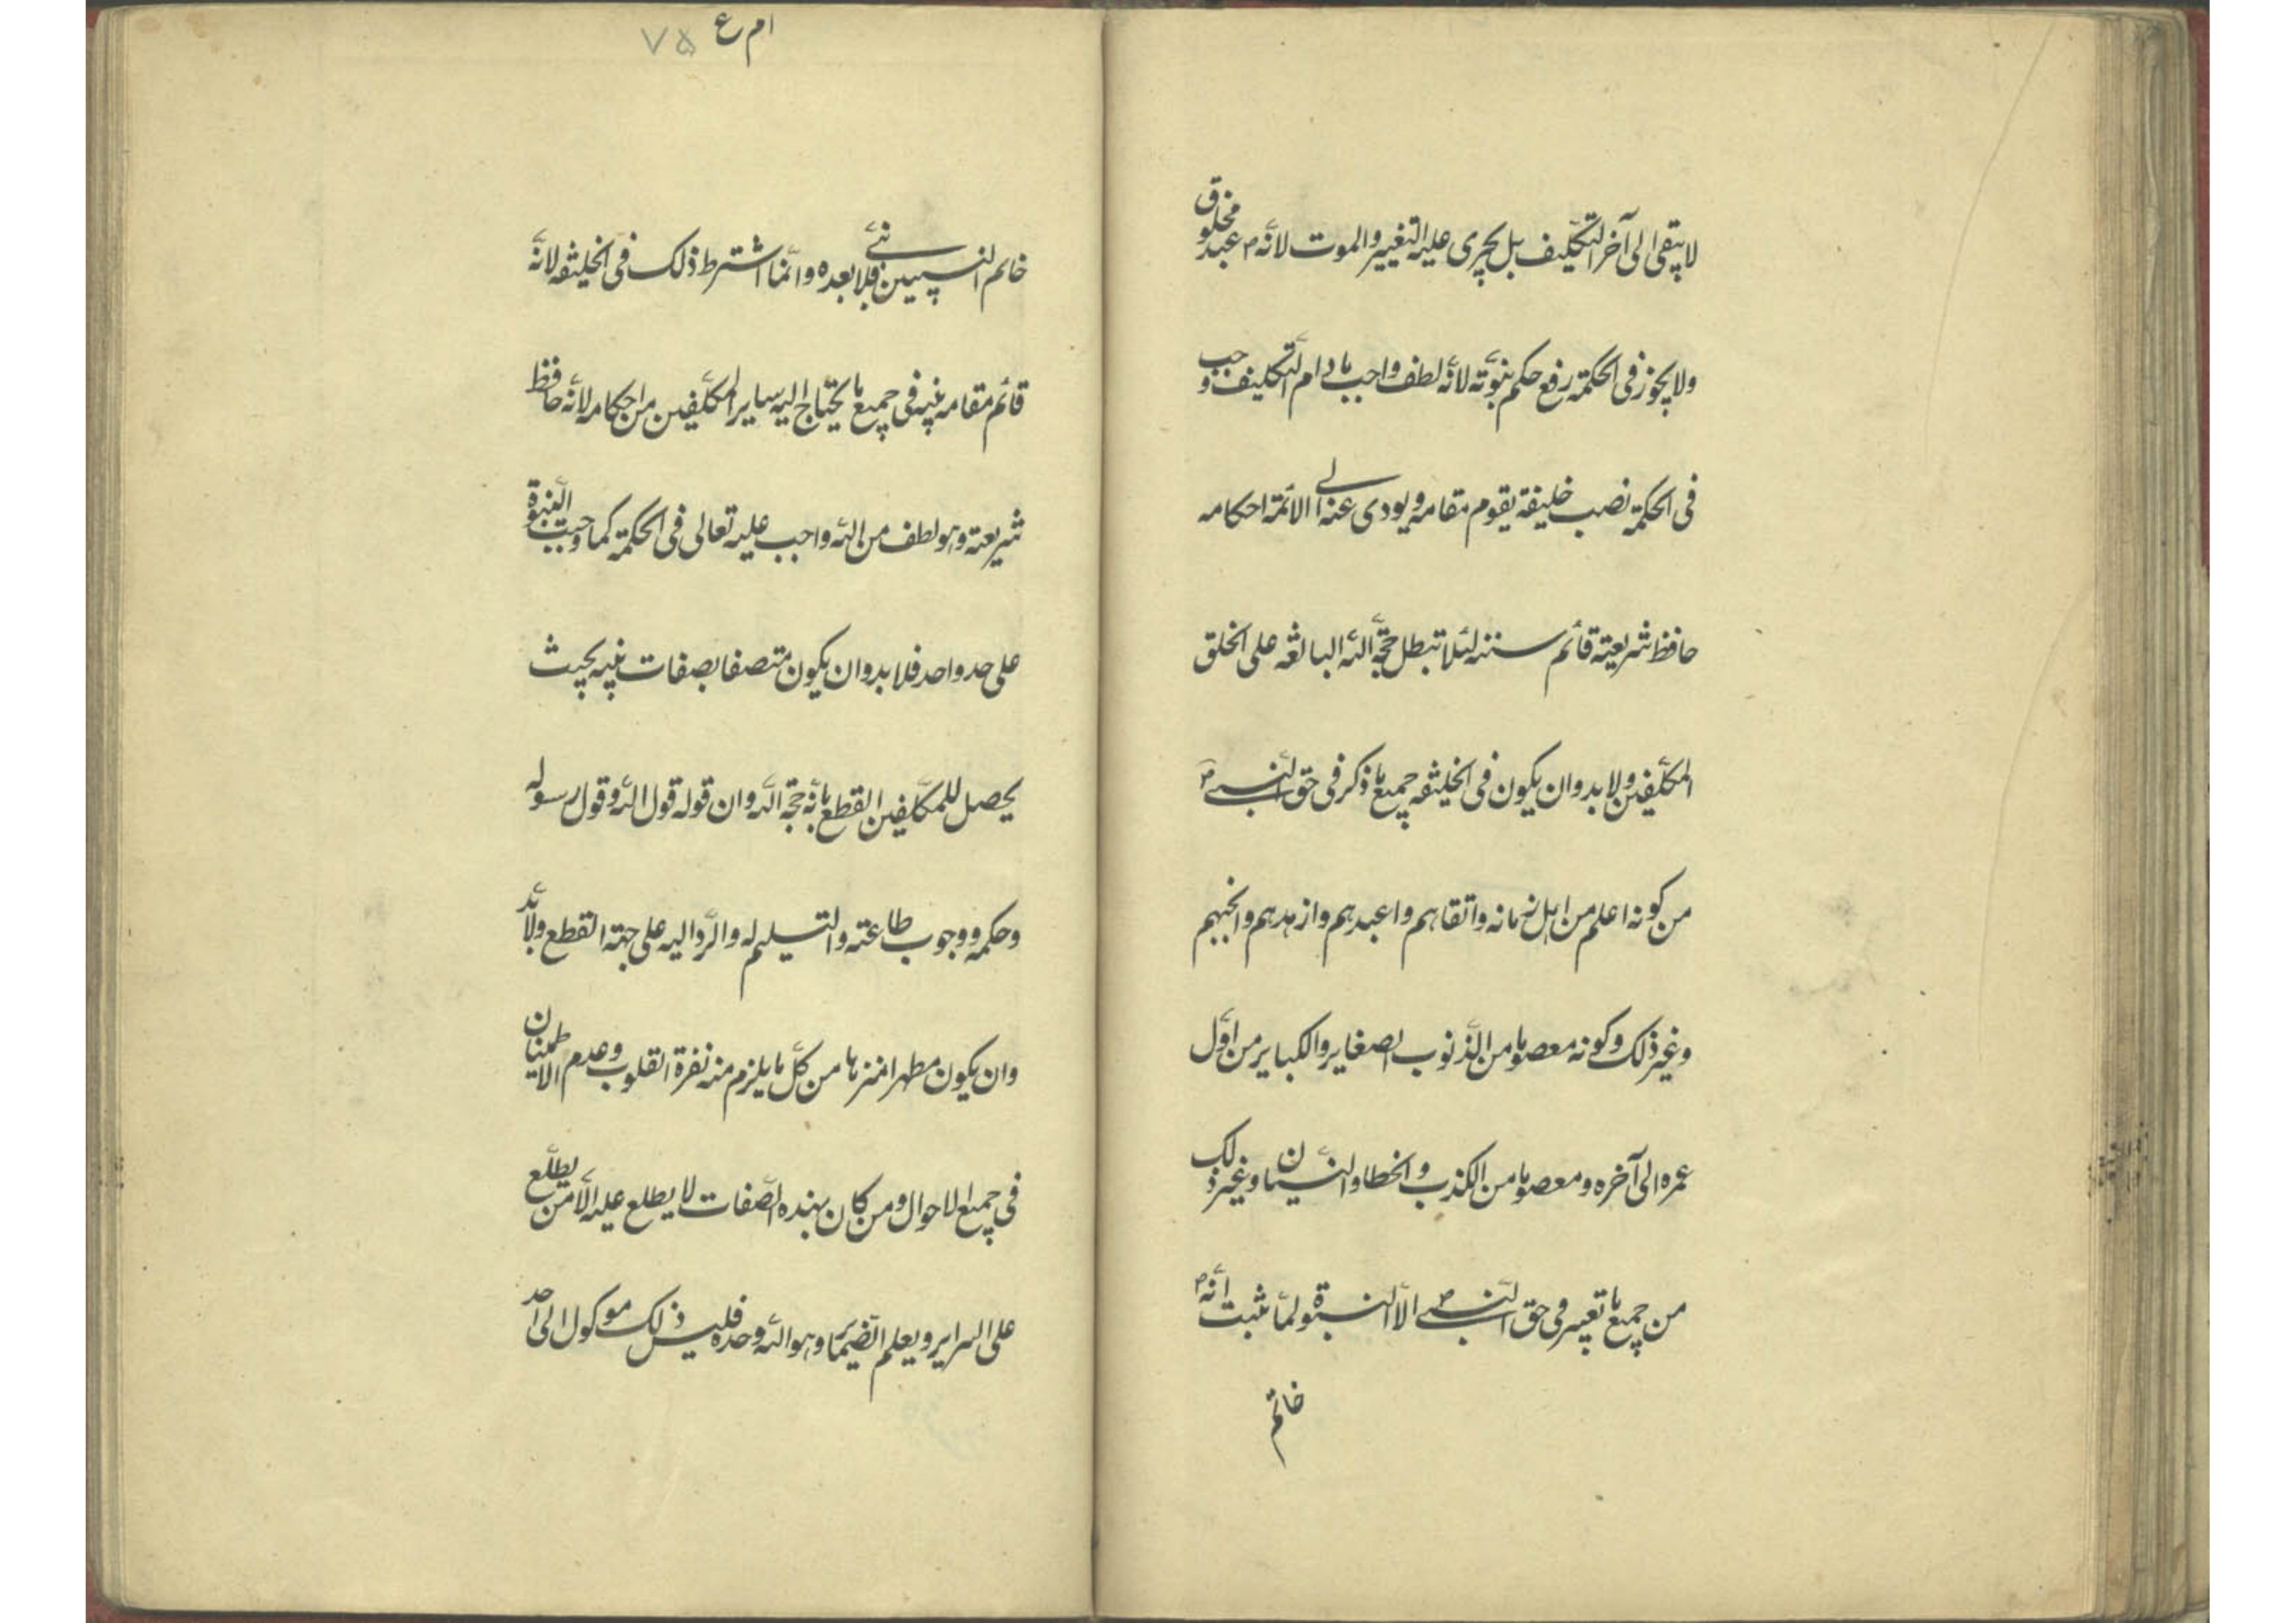 لا يبقى الى آخر التكليف بل يجرى عليه التغيير والموت لانّه ص عبد مخلوق
ولا يجوز فى الحكمة رفع حكم نبوّته لانّه لطف واجب ما دام التّكليف وجب
فى الحكمة نصب خليفة يقوم مقامه ويودى عنه الى الائمة احكامه
حافظ شريعته قائم سننه لئلا تبطل حجّة الله البالغة على الخلق
المكلّفين ولا بد وان يكون فى الخليفة جميع ما ذكر فى حق النّبى ص
من كونه اعلم من اهل زمانه واتقاهم واعبدهم وازهدهم وانجبهم
وغير ذلك وكونه معصوما من الذّنوب الصغاير والكباير من اوّل
عمره الى آخره ومعصوما من الكذب والخطا والنّسيان وغير ذلك
من جميع ما تعيسر فى حق النّبى ص الّا النبوة ولمّا ثبت انّه ص
خاتم
ام ع ٧۵
خاتم النبيين فلا نبى بعده وانّما اشترط ذلك فى الخليفة لانّه
قائم مقام نبيه فى جميع ما يحتاج اليه ساير المكلّفين من احكامه لانّه حافظ
شريعته وهو لطف من الله واجب عليه تعالى فى الحكمة كما وجبت النّبوة
على حد واحد فلا بد وان يكون متصفا بصفات نبيه بحيث
يحصل للمكلّفين القطع بانّه حجّة الله وان قوله قول الله وقول رسوله
وحكمه ووجوب طاعته والتسليم له والرّد اليه على جهة القطع ولا بدّ
وان يكون مطهرا منزها من كلّ ما يلزم منه نفرة القلوب وعدم الاطمينان
فى جميع الاحوال ومن كان بهذه الصّفات لا يطلع عليه الّا من يطلّع
على السراير ويعلم الضّماير وهو الله وحده فليس ذلك موكولا الى احد